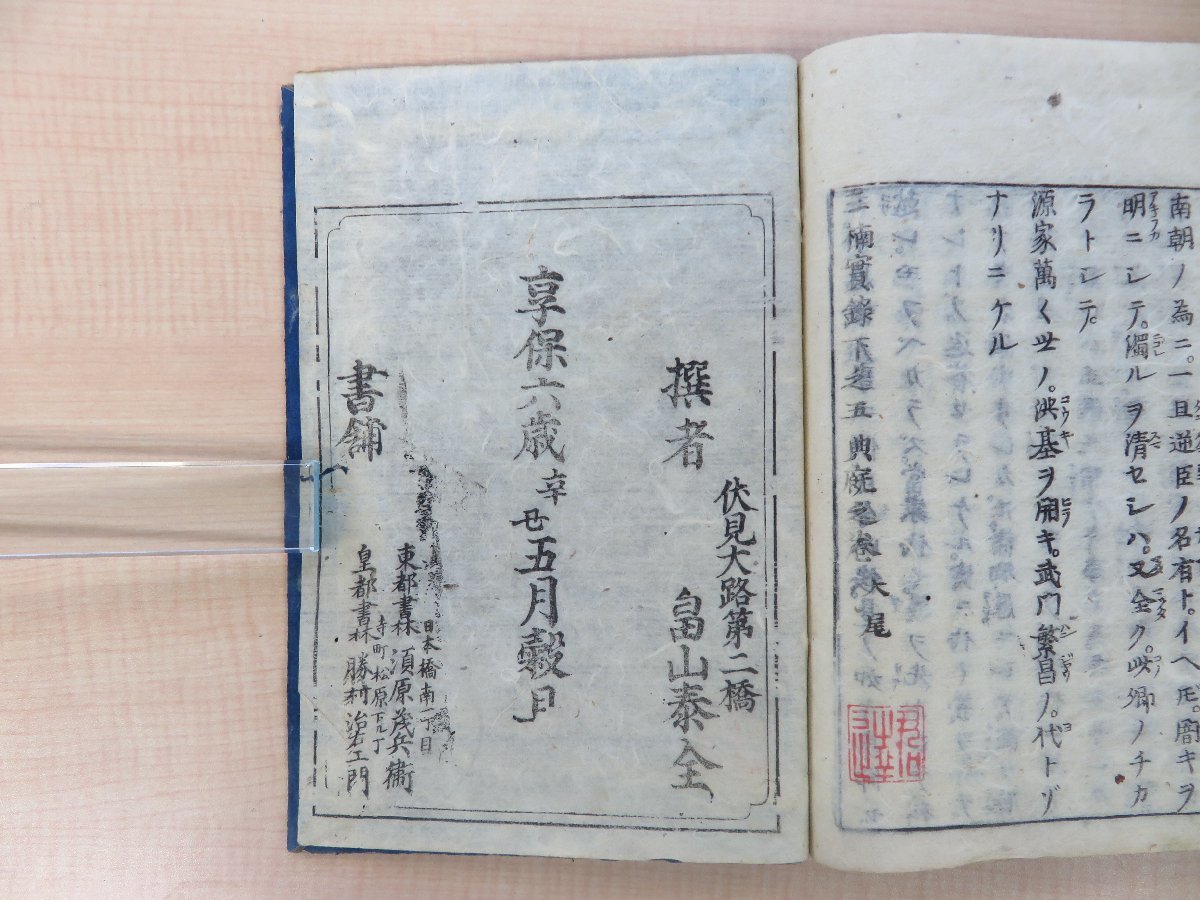 南朝ノ為ニ。一旦逆臣ノ名有ト。イヘ𪜈。闇キヲ
明ニシテ。濁ルヲ清セシハ。又全ク。此卿ノチカ
ラトシテ。
源家萬〱世ノ。洪基ヲ開キ。武門繁昌ノ。代トゾ
ナリニケル
三楠實錄下之五 大尾
撰者
伏見大路第二橋
畠山泰全
享保六歳辛丑五月穀旦
書舗
日本橋南一丁目
東都書林 須原茂兵衞
寺町松原下ル丁
皇都書林 勝村治右エ門